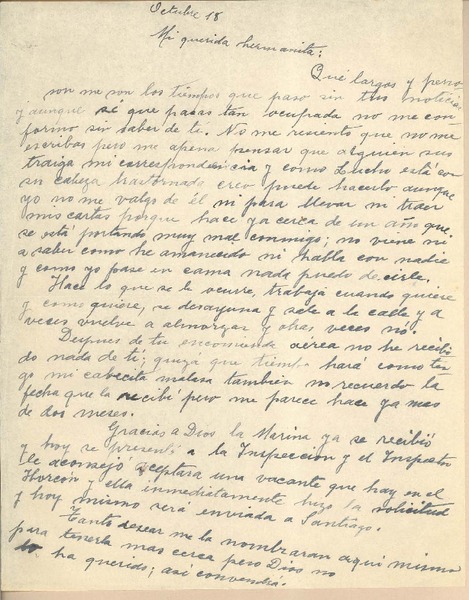 Octubre 18
Mi querida hermanita:
Que largos y peno
son me son los tiempos que paso sin tus noticias
y aunque sé que pasas tan ocupada no me con
formo sin saber de ti. No me recuento que no me
escribas pero me apena pensar que alguien sus
traiga mi correspondencia y como Lucho está con
su cabeza trastornada creo puede hacerlo aunque
yo no me valgo de él ni para llevar ni traer
mis cartas porque hace ya cerca de un año que
se está portando muy mal conmigo; no viene ni
a saber como he amanecido ni habla con nadie
y como yo pase en cama nada puedo decirle.
Hace lo que se le ocurre, trabaja cuando quiere
y como quiere, se desayuna y sale a la calle y a
veces vuelve a almorzar y otras veces no.
Despues de tu encomienda aérea no he recibi
do nada de ti; quizá que tiempo hará como ten
go mi cabecita malasa tambien no recuerdo la
fecha que la recibí pero me parece hace ya mas
de dos meses.
Gracias a Dios la Marina ya se recibió
y hoy se presentó a la Inspeccion y el Inspector
le aconsejó aceptara una vacante que hay en el
Horcón y ella inmediatamente hizo la solicitud
y hoy mismo será enviada a Santiago.
Tanto desear me la nombraran aquí mismo
para tenerla mas cerca pero Dios no
lo ha querido; así convendrá.